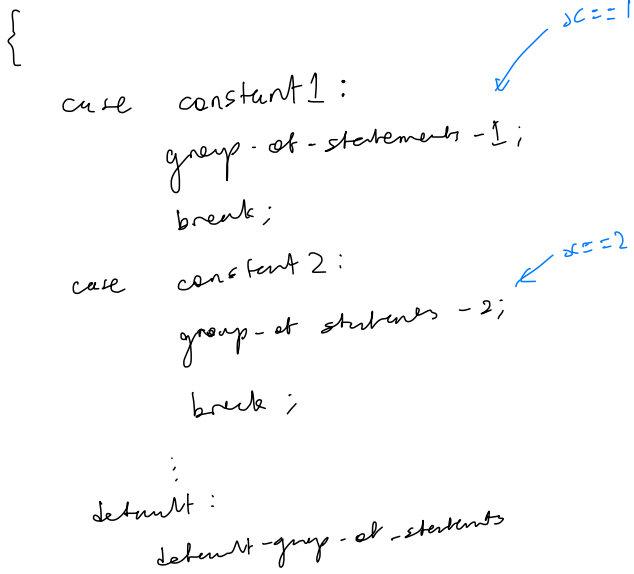 {
x==1
case constant1:
group-of-statements-1;
break;
case constant2:
x==2
group-of statements -2;
break;
⋮
default:
default-group-of-statements